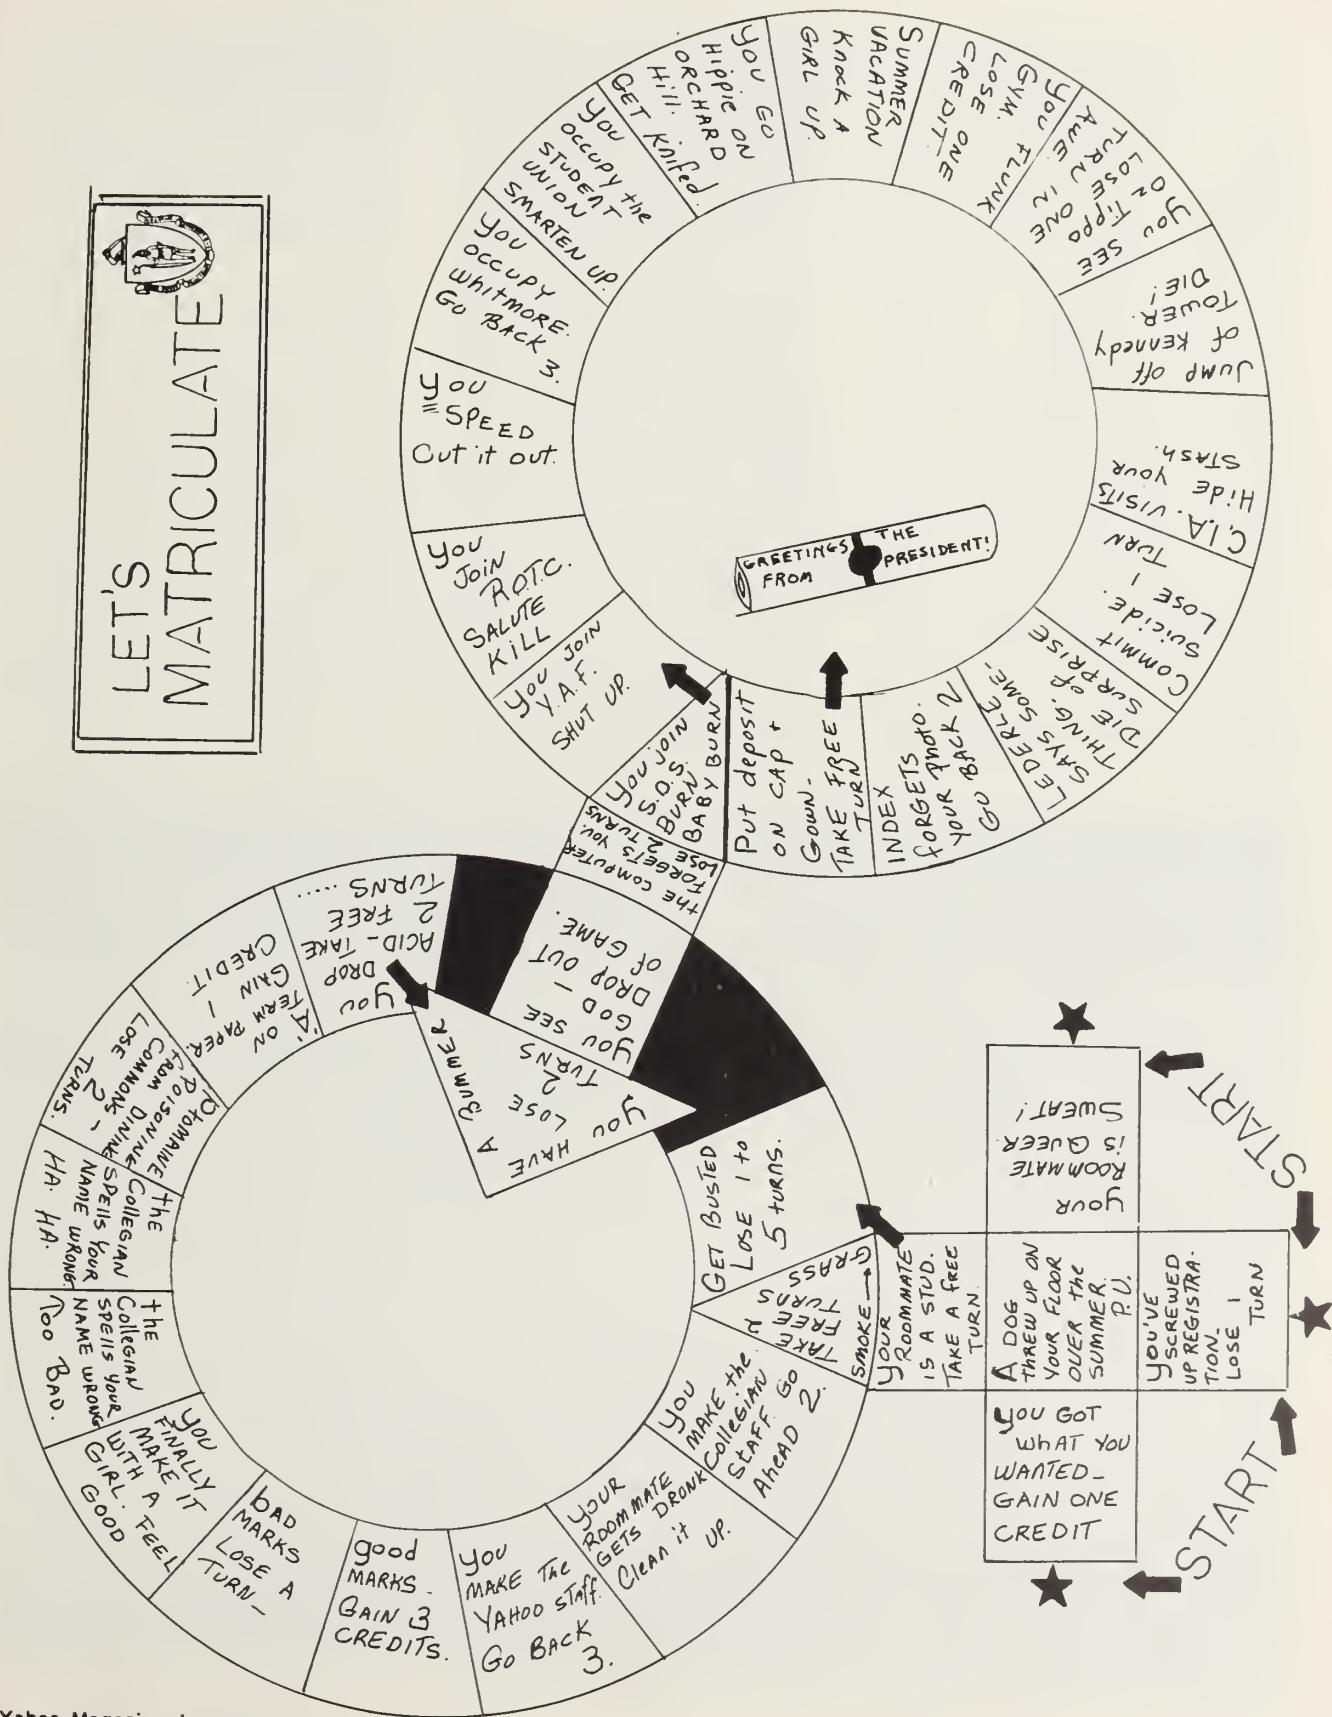 LET'S
MATRICULATE
START
START
YOUR
ROOMMATE
IS QUEER.
SWEAT!
YOU'VE
SCREWED
UP REGISTRA-
TION-
LOSE 1
TURN
YOU GOT
WHAT YOU
WANTED-
GAIN ONE
CREDIT
A DOG
THREW UP ON
YOUR FLOOR
OVER the
SUMMER.
P.U.
YOUR
ROOMMATE
IS A STUD.
TAKE A FREE
TURN.
SMOKE → GRASS
TAKE 2
FREE
TURNS
YOU
MAKE the
Collegian
STAFF. GO
AheAD 2.
YOUR
ROOMMATE
GETS DRONK
Clean it
UP.
YOU
MAKE The
YAHOO STAFF.
GO BACK
3.
good
MARKS-
GAIN 3
CREDITS.
bAD
MARKS
LOSE A
TURN-
YOU
FINALLY
MAKE IT
WITH A
GIRL. FEEL
GOOD
the
Collegian
SPELLS YOUR
NAME WRONG
TOO BAD.
the
Collegian
SPELLS YOUR
NAME WRONG.
HA. HA.
PTOMAINE
POISONING
FROM DINING
COMMONS-
LOSE 2
TURNS.
"A" ON
TERM PAPER.
GAIN 1
CREDIT.
YOU DROP
ACID-TAKE
2 FREE
TURNS .....
YOU
HAVE A BUMMER
LOSE
2
TURNS
GET BUSTED
LOSE 1 to
5 turns.
YOU SEE
GOD -
DROP OUT
OF GAME.
the COMPUTER
FORGETS YOU.
LOSE 2 TURNS
YOU JOIN
S.D.S.
BURN
BABY BURN
YOU JOIN
Y.A.F.
SHUT UP.
YOU
JOIN
R.O.T.C.
SALUTE
KILL
YOU
SPEED
Cut it out.
YOU
OCCUPY
Whitmore.
GO BACK
3.
YOU
OCCUPY the
STUDENT
UNION
SMARTEN UP.
YOU GO
Hippie ON
ORCHARD
Hill.
GET Knifed.
SUMMER
VACATION
KNOCK A
GIRL UP.
YOU FLUNK
GYM.
LOSE ONE
CREDIT-
YOU SEE
OZ TIPPO
LOSE ONE
TURN IN
AWE.
JUMP Off
of Kennedy
TOWER.
DIE!
C.I.A. VISITS
HIDE YOUR
STASH.
COMMIT
SUICIDE.
LOSE 1
TURN
LEDERLE
SAYS SOME-
THING.
DIE OF
SURPRISE
INDEX
FORGETS
YOUR PHOTO.
GO BACK 2
Put deposit
ON CAP +
GOWN-
TAKE FREE
TURN
GREETINGS
FROM
THE
PRESIDENT!